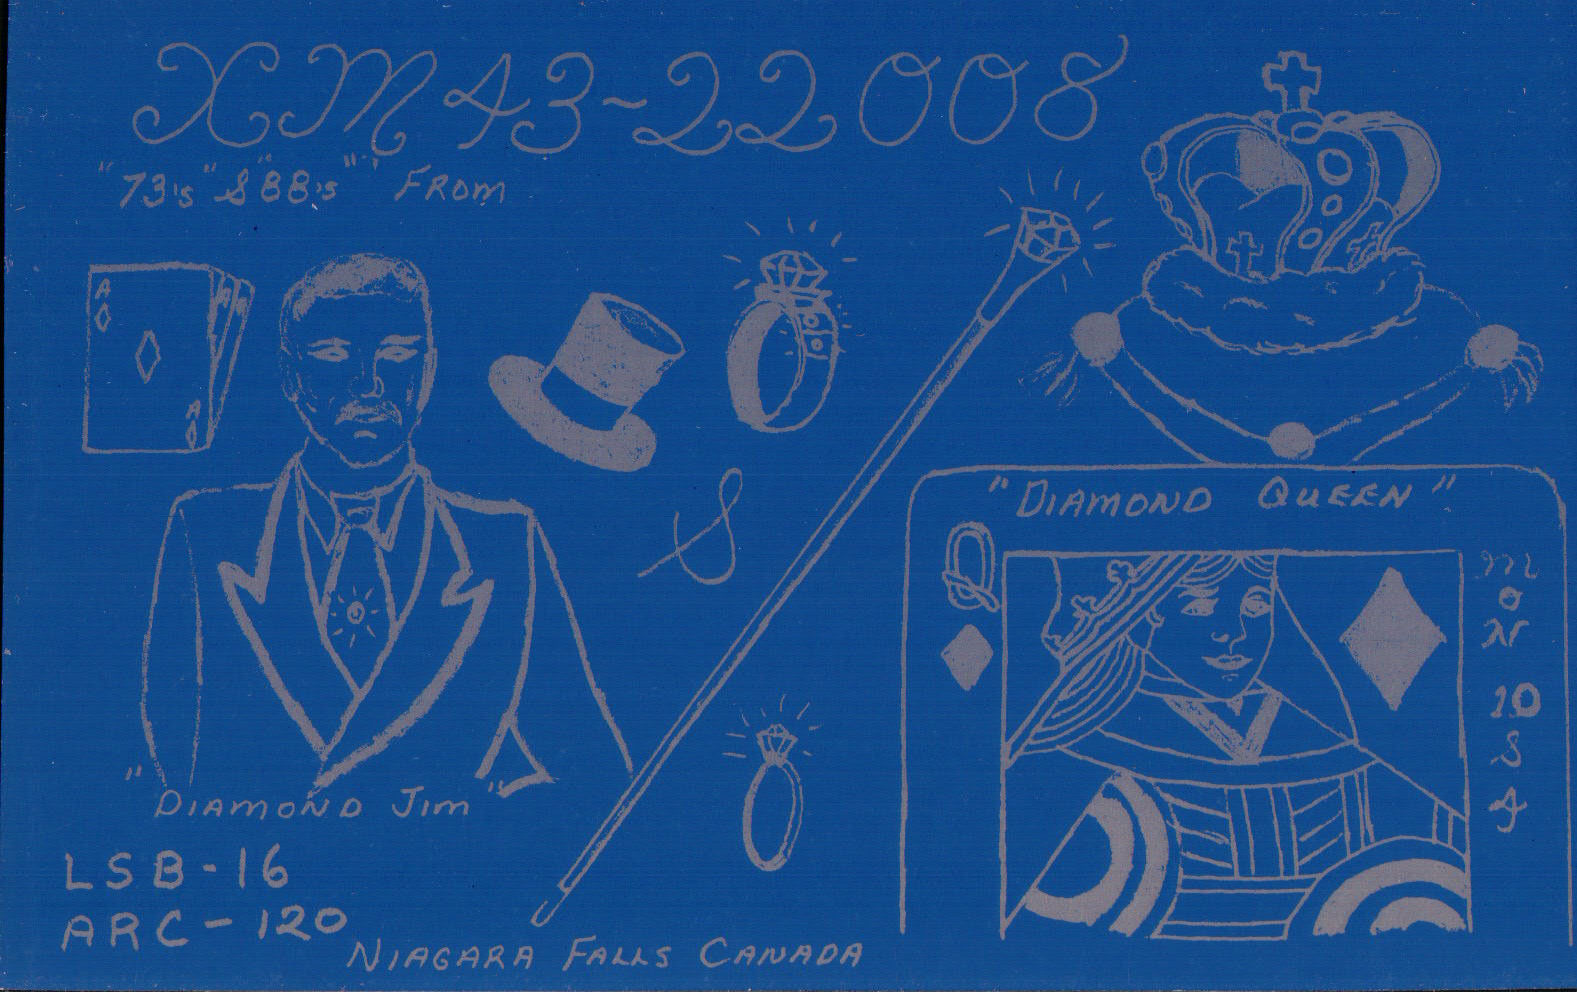 XM43-22008
"73's" & "88's" FROM
A
A
A
A
&
"DIAMOND JIM"
"DIAMOND QUEEN"
Q
MON 10S4
LSB-16
ARC-120
NIAGARA FALLS CANADA